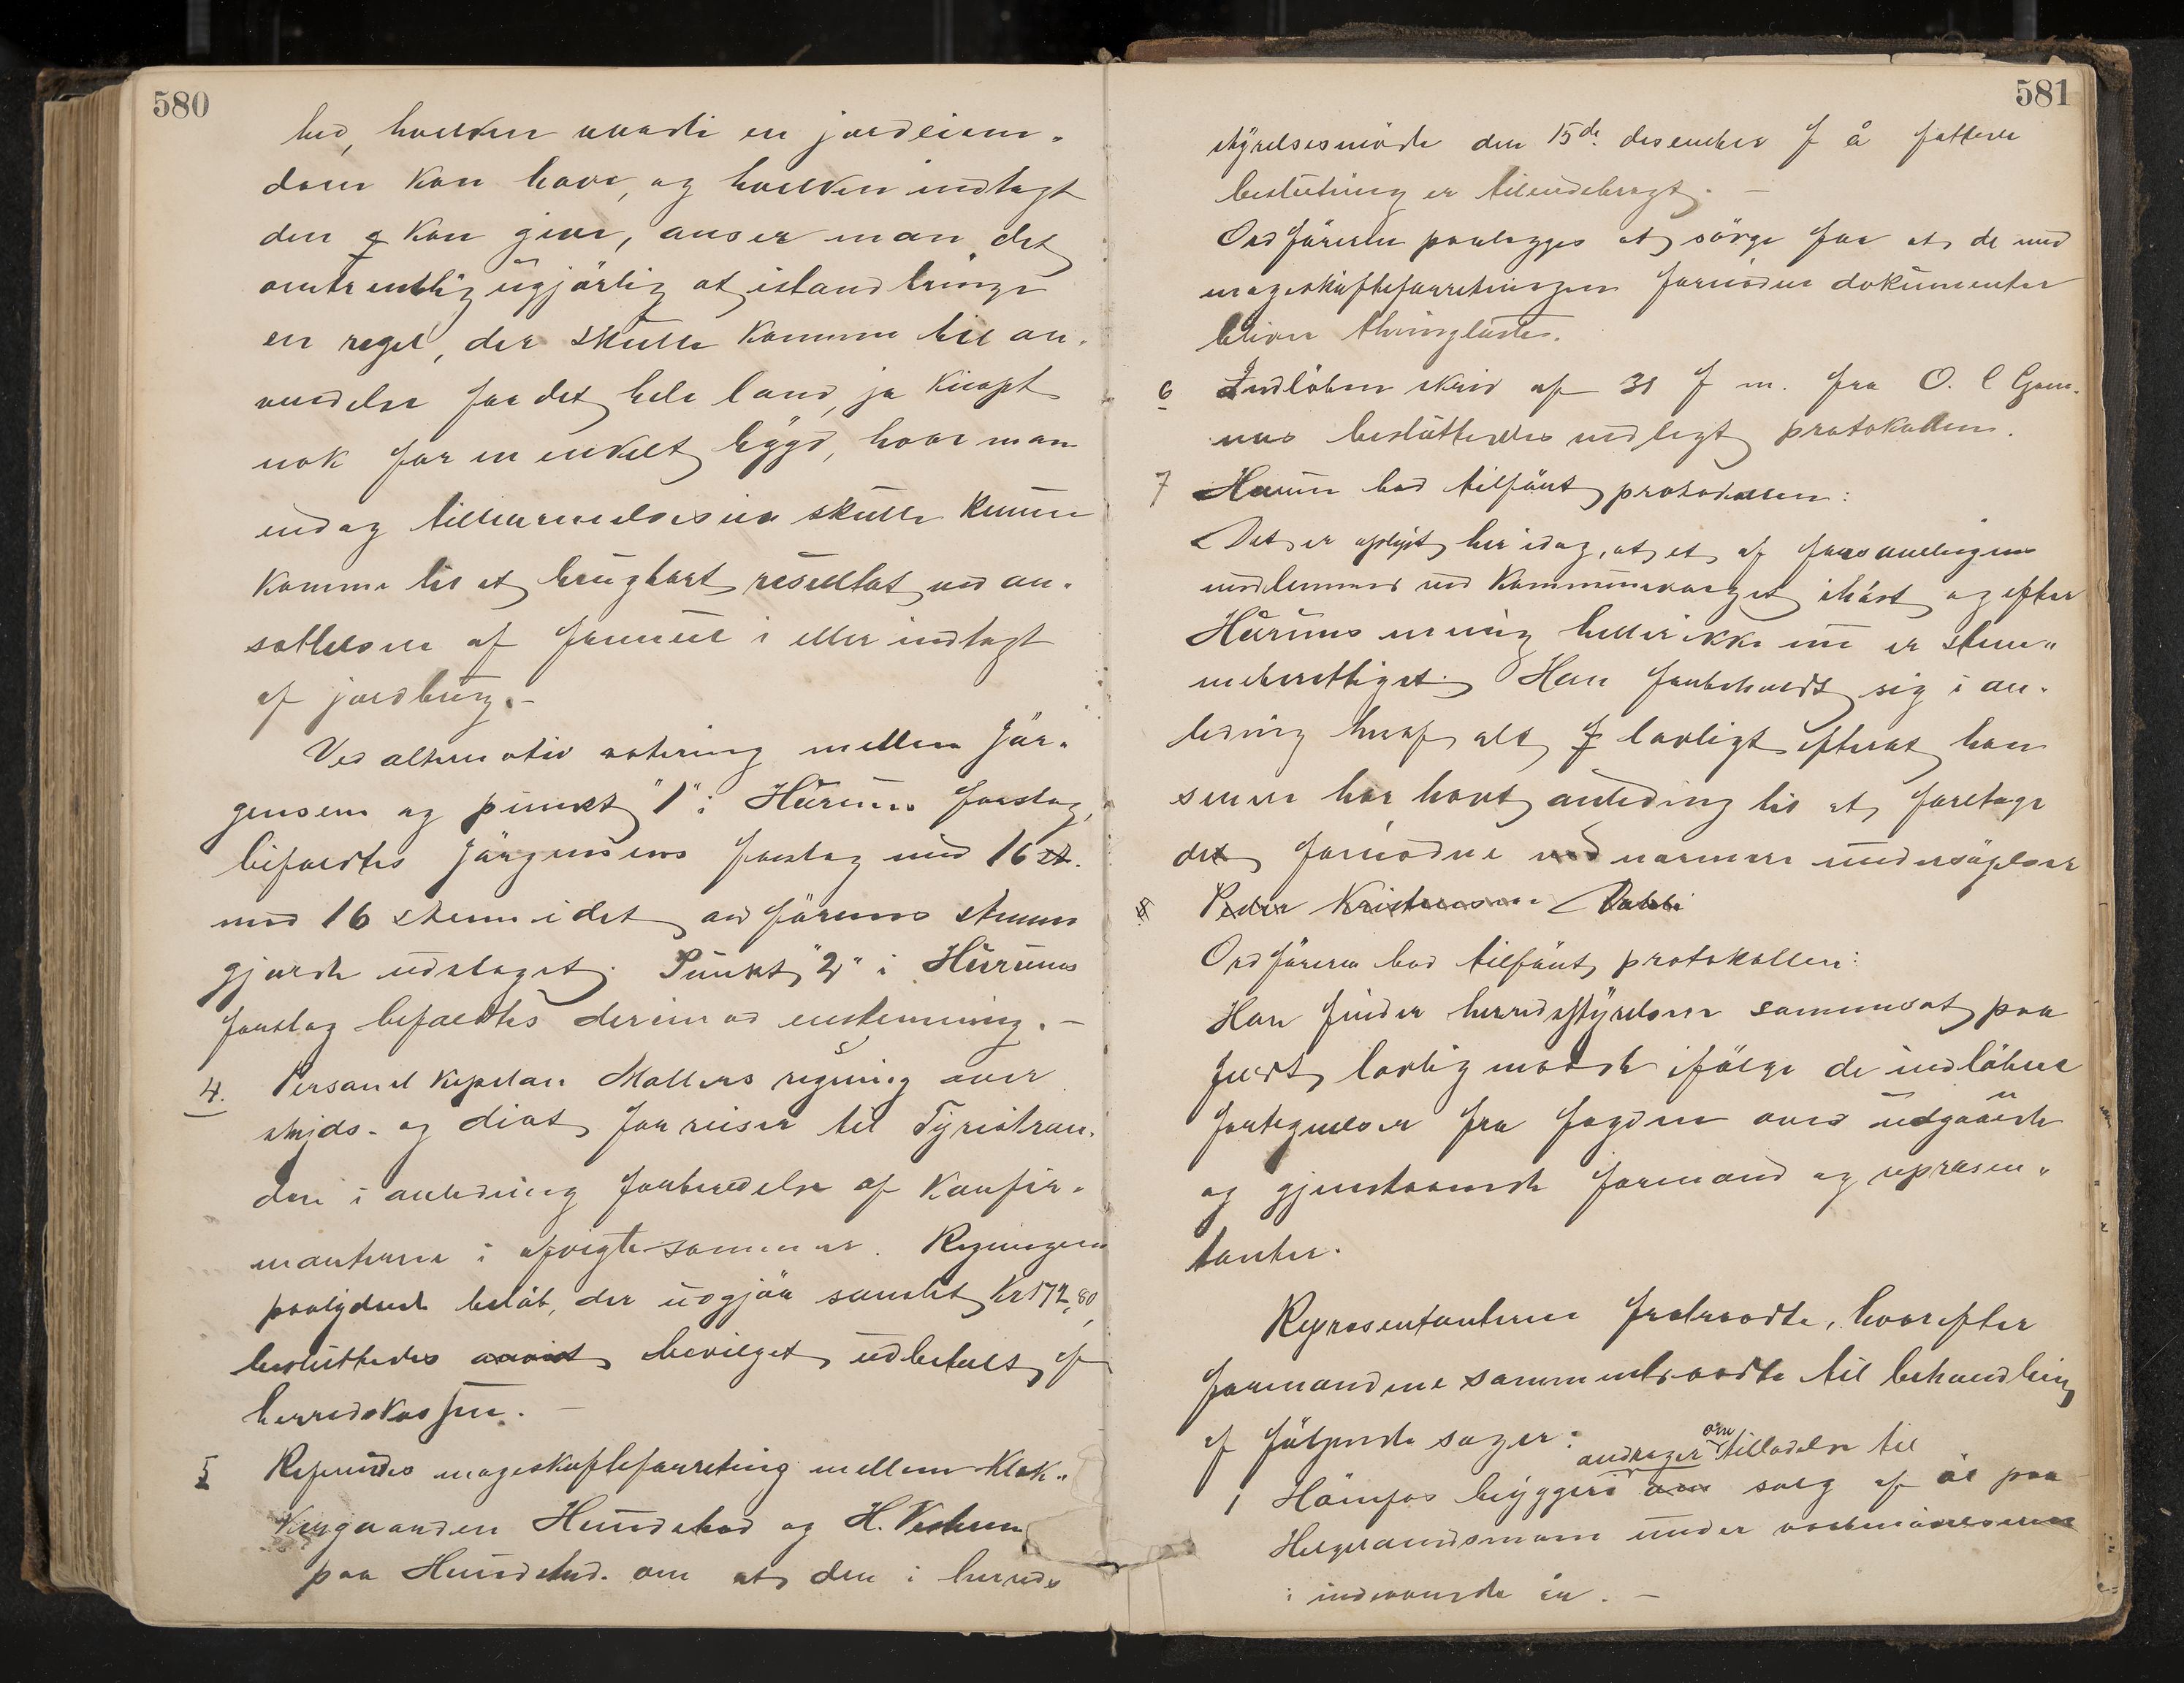 580
hed, hvilken værdi en jordeien-
dom kan have, og hvilken indtægt
den kan give, anser man det
omtrentlig ugjörlig at istandbringe
en regel, der skulle komme til an-
vendelse for det hele land, ja knapt
nok for en enkelt bygd, hvor man
endog skulle kunne
komme til et brugbart resultat ved an-
sættelsen af formue i eller indtægt
af jordbrug.-
Ved alternativ votering mellem Jör-
gensens og punkt "1" i Hurums forslag,
bifaldtes Jörgensens forslag med 16 st.
mod 16 stemmer idet ordförerens stemme
gjorde udslaget. Punkt "2" i Hurums
forslag bifaldtes derimod enstemmig.-
4. Personel kapelan Möllers regning over
skyds- og diæt for reiser til Tyristran-
den i anledning forberedelse af konfir-
manterne i afvigte sommer. Regningens
paalydende beløb, der udgjör samlet Kr 172,80,
besluttedes bevilget udbetalt af
herredskassen.-
5 Refereredes mageskifteforretning mellem Klæk-
kergaarden Hundstad og H. Vestern
paa Hundstad. om at den i herreds
581
styrelsesmöde den 15de desember f å fattede
beslutning er tilendebragt.-
Ordföreren paalægges at sörge for at de med
mageskifteforretningen fornödne dokumenter
bliver thinglæste.
6 Indlöben skriv af 31 f m. fra O. C Gom-
næs besluttedes vedlagt protokollen.
7 Hurum bad tilfört protokollen:
Det er oplyst her idag, at et af forsamlingens
medlemmer ved kommunevalget ihöst og efter
Hurums mening heller ikke nu er stem-
meberettiget. Han forbeholdt sig i an-
ledning heraf alt lovligt efterat han
senere har havt anledning til at foretage
det fornödne ved nærmere undersögelser
8 Peder Kristensen Dahl
Ordföreren bad tilfört protokollen:
Han finder herredsstyrelsen sammensat paa
fuldt lovlig maade ifölge de indlöbne
fortegnelser fra fogden over udgaaede
og gjenstaaende formænd og repræsen-
tanter.
Repræsentanterne fratraadte, hvorefter
formændene sammentraadte til behandling
af fölgende sager:
andrager om tilladelse til
1 Hönefos bryggeri om salg af öl paa
Helgelandsmoen under vaabenövelserne
i indeværende år.-